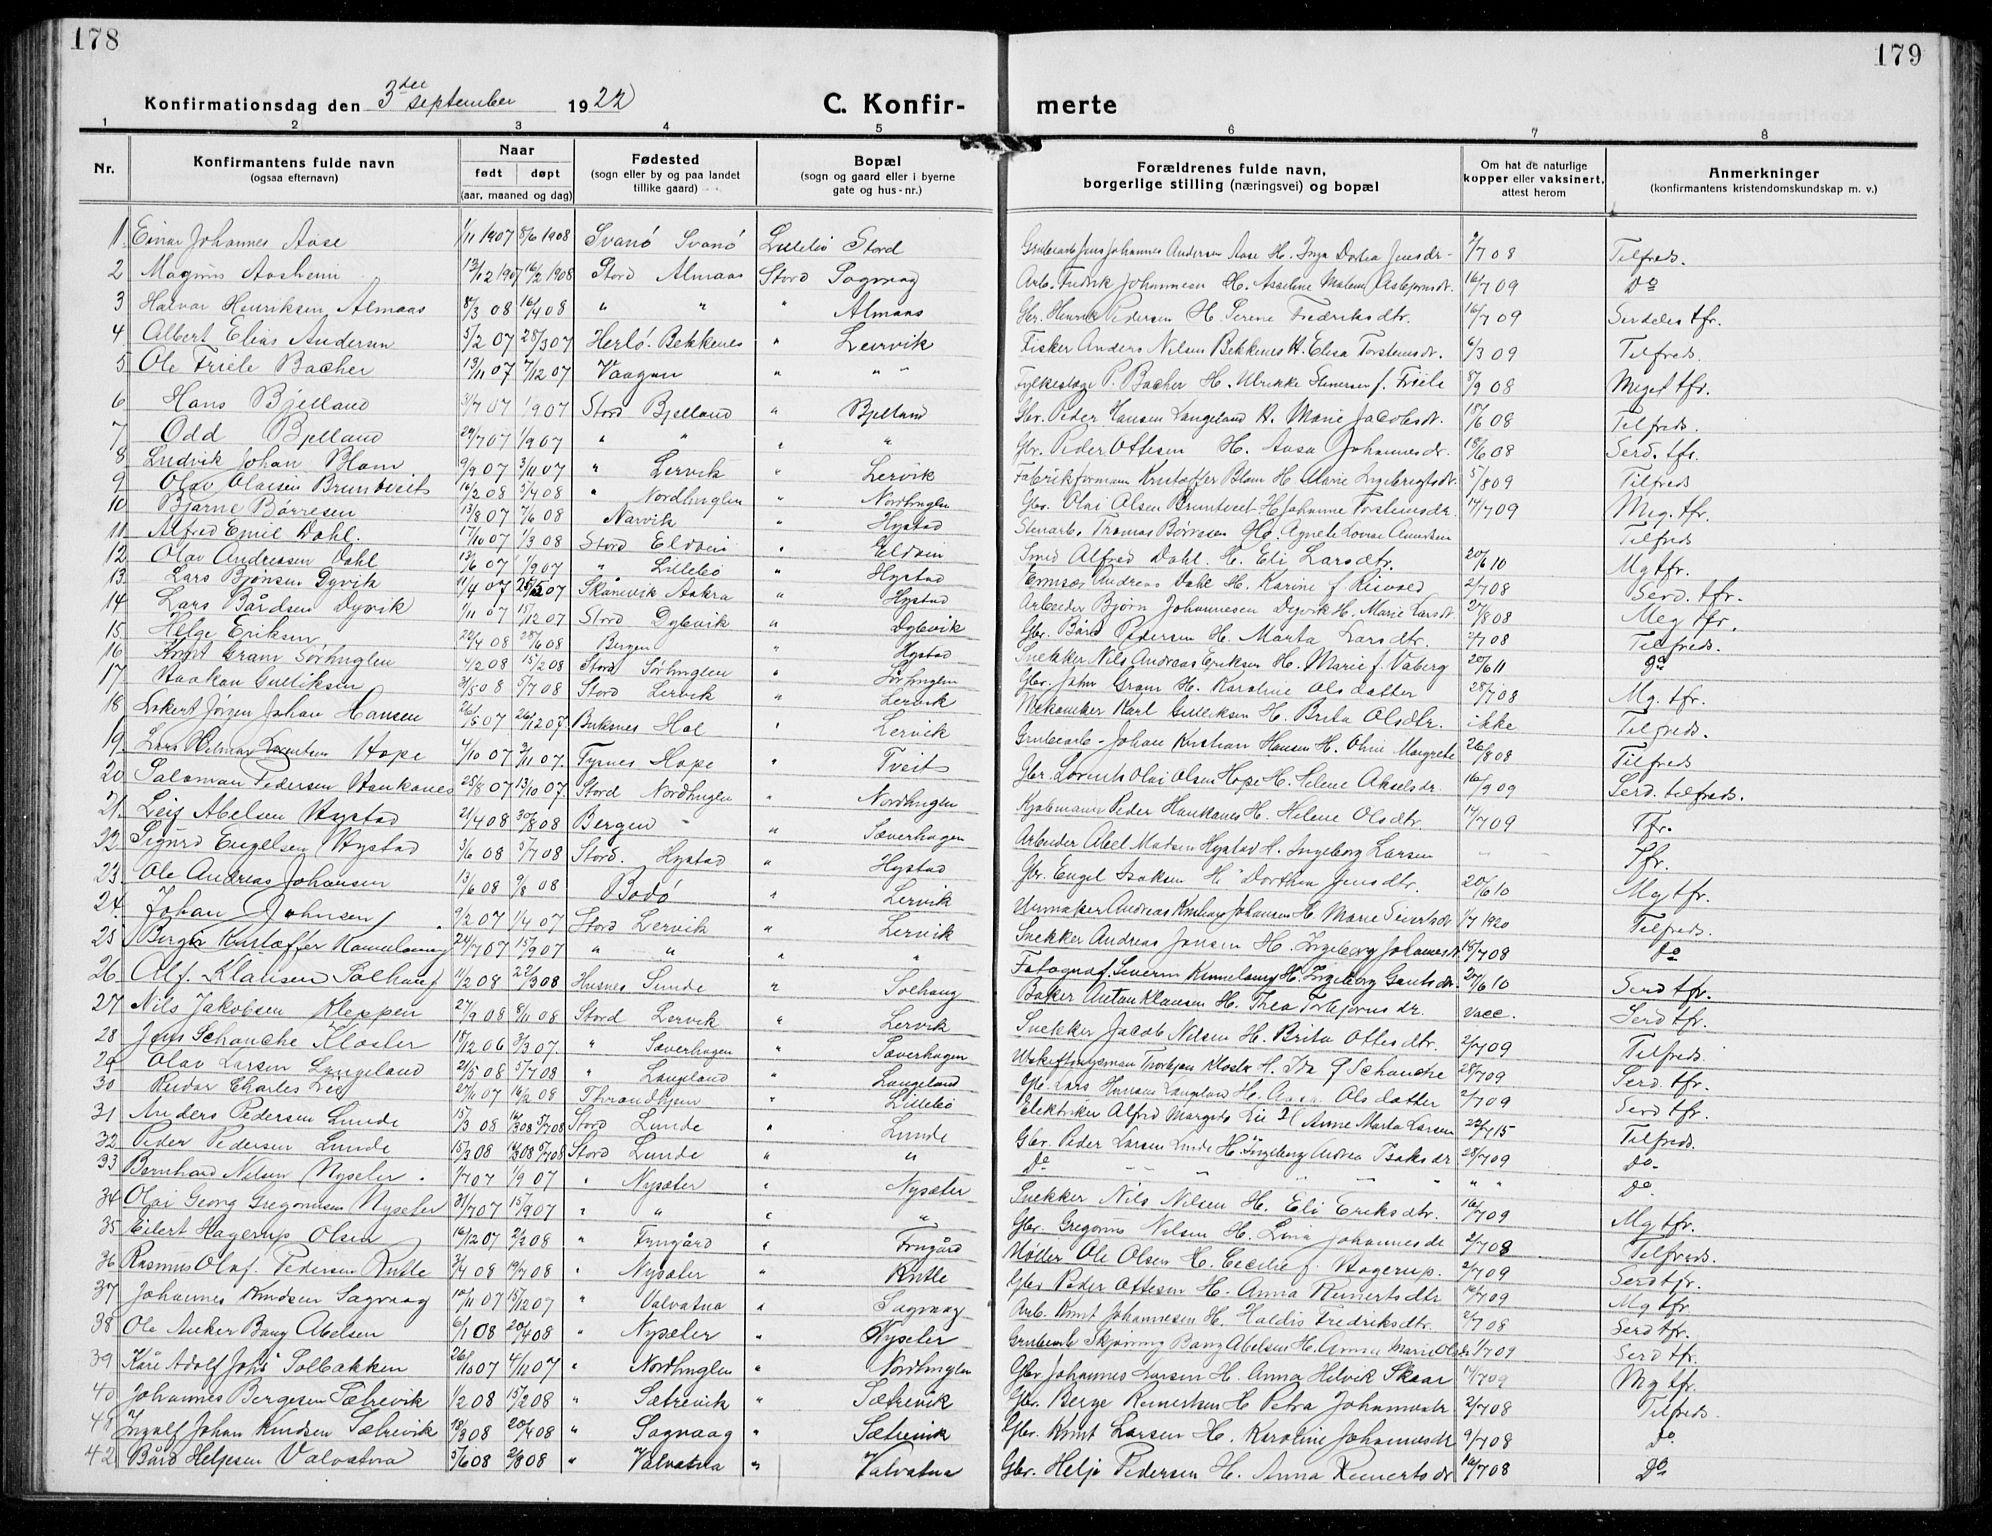 178
179
Konfirmationsdag den 3die september 1922
C. Konfir- merte
1 2 3 4 5 6 7 8
Nr.
Konfirmantens fulde navn
(ogsaa efternavn)
Naar
født døpt
(aar, maaned og dag)
Fødested
(sogn eller by og paa landet
tillike gaard)
Bopæl
(sogn og gaard eller i byerne
gate og hus-nr.)
Forældrenes fulde navn,
borgerlige stilling (næringsvei) og bopæl
Om hat de naturlige
kopper eller vaksinert,
attest herom
Anmerkninger
(konfirmantens kristendomskundskap m. v.)
1. Einar Johannes Aase 1/11 1907 8/6 1908 Svanö Svanö Lillebö Stord Johannes Andersen Aase H. Inga Dortea Jensdr. 7/7 08 Tilfreds.
2 Magnus Aasheim 13/12 1907 16/2 1908 Stord Almaas Stord Sagvaag Arb. Fredrik Johannesen H. 16/7 09 Do
3 Halvar Henriksen Almaas 8/3 08 16/4 08 " " " Almaas Gbr. Henrik Pedersen H. Serene Fredriksdtr. 16/7 09 Serdeles tfr.
4 Albert Elias Andersen 5/2 07 28/3 07 Herlö. Bekkenes " Leirvik Fisker Anders Nilsen Bekkenes H. Elisa Torstensdr. 6/3 09 Tilfreds.
5 Ole Friele Bacher 13/11 07 7/12 07 Vaagen " " " Fylkeslæge P. Bacher H. Ulrikke f. Friele 8/9 08 Meget tfr.
6 Hans Bjelland 3/7 07 1/9 07 Stord Bjelland " Bjelland Gbr. Peder Hansen Langeland H. Marie Jacobsdt. 18/6 08 Tilfreds.
7 Odd Bjelland 29/7 07 1/9 07 " " " " Gbr. Peder Ottesen H. Aasa Johannesdr. 18/6 08 Serd. tfr.
8 Ludvik Johan Blom 9/9 07 3/11 07 " Lervik " Lervik Fabrikformann Kristoffer Blom H. Marie Ingebrigtsdt. 5/8 09 Tilfreds
9 Olav Olaisen Bruntveit 16/2 08 5/4 08 " Nordhuglen " Nordhuglen Gbr. Olai Olsen Bruntveit H. Johanne Torstensdr. 14/7 09 Meg. tfr.
10 Bjarne Børresen 13/8 07 7/6 08 Narvik " Hystad Stenarb. Thomas Børresen H. Agnete Lovise Tilfreds
11 Alfred Emil Dahl. 17/10 07 1/3 08 Stord Eldøen " Eldøen Smed Alfred Dahl. H. Eli Larsdtr. 20/6 10 Mg tfr.
12 Olav Andreassen Dahl 12/6 07 1/9 07 " Lillebö " Hystad Andreas Dahl H. Karine f. 2/7 08 Serd. tfr.
13. Lars Bjønsen Dyvik 11/4 07 26/5 07 Skånevik Aakra " Hystad Arbeider Bjørn Johannesen Dyvik H. Marie Larsdt. 27/8 08 Meg tfr.
14 Lars Bårdsen Dyvik 1/11 07 15/12 07 Stord Dybvik " Dybvik Gbr. Bård Pedersen H. Marta Larsdtr. 2/7 08 Tilfreds.
15 Helge Eriksen 22/4 08 28/6 08 Bergen " Hystad Snekker Nils Andreas Eriksen H. Marie f. Vaberg 20/6 11 Do
16 Knut Gram Sørhuglen 4/2 08 15/2 08 Stord Sørhuglen " Sørhuglen Gbr. John Gram H. Karoline Olsdatter 28/7 08 Mg. tfr.
17 Haakon Gulliksen 21/5 08 5/7 08 Stord Lervik " Lervik Mekaniker Karl Gulliksen H. Brita Olsdtr. ikke Tilfreds.
18 Jörgen Johan Hansen 26/5 07 26/12 07. Buksnes Hol " Lervik Grubearb. Johan Kristian Hansen H. Oline Margrete 26/8 08 Tilfreds
19 Lars Hilmar Hope 4/10 07 3/11 07. Fyrnes Hope " Tveit Gbr. Lorents Olai Olsen Hope H. Helene Akselsdr. 16/9 09 Serd. tilfreds.
20 Salomon Pedersen Haukanes 25/8 07 13/10 07. Stord Nordhuglen " Nordhuglen Kjøbmann Peder Haukanes H. Helene Olsdtr. 14/7 09 Tfr.
21. Leif Abelsen Hystad 21/4 08 30/8 08 Bergen " Sæverhagen Arbeider Abel Madsen Hystad H. Ingeborg Larsen Tfr.
22 Sigurd Engelsen Hystad 3/6 08 5/7 08 Stord. Hystad " Hystad Gbr. Engel Isaksen H. Dorthea Jensdtr. 20/6 10 Mg tfr.
23 Ole Andreas Johansen 13/6 08 9/8 08 Bodö " Lervik Urmaker Andreas Johansen H. Marie Sivertsdt 1/7 1920 Tilfreds.
24. Johan Johnsen 9/2 07 1/4 07 Stord Lervik " Lervik Snekker Andreas Jonsen H. Ingeborg Johannesdt 15/7 08 Do
25 Birger Kristoffer 24/7 07 15/9 07 " " " " Fotograf. Severin H. Ingeborg 20/6 10 Serd tfr.
26 Alf. Klausen Solhaug 11/2 08 22/3 08 Husnes Sunde " Solhaug Baker Anton Klausen H. Thea Torbjørnsdr. vacc. Serd tfr.
27 Nils Jakobsen Kleppen 27/9 08 8/11 08 Stord Lervik " Lervik Snekker Jacob Nilsen H. Brita Ottesdtr. 2/7 09 Tilfreds.
28 Jens Schanche Kloster 18/12 06 3/3 07. " Sæverhagen " Sæverhagen Torbjørn Kloster H. Ida f. Schanche 28/7 09 Serd. tfr.
29 Olav Larsen Langeland 21/5 08 5/7 08 " Langeland " Langeland Gbr. Lars Hansen Langeland H. Olsdatter 2/7 09 Serd tfr.
30 Reidar Charles Lie 27/11 07 16/2 08 Throndhjem " Lillebö Elektriker Alfred Lie H. Anne Marta Larsen 22/7 15 Tilfreds.
31 Anders Pedersen Lunde 15/3 08 Stord Lunde " Lunde Gbr. Peder Larsen Lunde H. Ingeborg Andrea Isaksdr 28/7 09 Do.
32 Peder Pedersen Lunde 15/3 08 Stord Lunde " " Do " " Do.
33 Bernhard Nilsen Nysæter. 1/7 07 1/9 07 " Nysæter " Nysæter Snekker Nils Nilsen H. Eli Eriksdtr. 16/7 09 Mg tfr.
34 Olai Georg Gregoriussen Nysæter 31/7 07 15/9 07 " " " " Gbr. Gregorius Nilsen H. Lina Johannesdr 2/7 08 Tilfreds.
35 Eilert Hagerup Olsen 16/12 07 2/2 08 " Fyrgård " Møller Ole Olsen H. Cecilie f. Hagerup. 2/7 09 Serd tfr.
36 Rasmus Olaf. Pedersen Rutle 3/4 08 19/7 08 " Nysæter " Rutle Gbr. Peder Ottesen H. Anna Reinertsdtr 16/7 09 Mg tfr.
37 Johannes Knudsen Sagvaag 10/11 07 15/12 07 " Valvatna " Sagvaag Arb. Knut Johannesen H. Haldis Fredriksdtr. 2/7 08 Serd tfr.
38 Ole Anker Bang Abelsen 6/1 08 20/4 08 " Nysæter " Nysæter Bang Abelsen H. Anna Marie 1/7 09 Serd tfr.
39 Kåre Adolf Johs Solbakken 26/10 07 4/11 07 " Nordhuglen " Nordhuglen Gbr Johannes Larsen H. Anna Helvik Skaar 14/7 09 Mg tfr.
40 Johannes Bergesen Sætrevik 1/2 08 15/2 08 " Sætrevik " Sætrevik Gbr. Berge Reinertsen H. Petra Johannesdr 2/7 08 Tilfreds.
41 Ingolf Johan Knudsen Sætrevik 18/3 08 20/4 08 " Sagvaag " Sætrevik Gbr. Knut Larsen H. Karoline Johannesdr 9/7 08 Do
42 Bård Heljesen Valvatna 5/6 08 2/8 08 " Valvatna " Valvatna Gbr. Helje Pedersen H. Anna Reinertsdr 16/7 08 Do